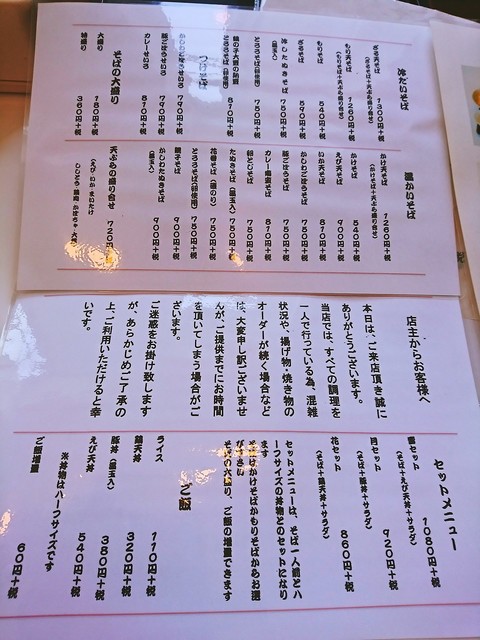 冷たいそば
ざる天そば 1300円+税
(ざるそば+天ぷら盛り合せ)
もり天そば 1250円+税
(もりそば+天ぷら盛り合せ)
もりそば 540円+税
ざるそば 590円+税
冷したぬきそば 750円+税
(温玉入)
とろろそば(卵使用) 750円+税
810円+税
とろろそば(卵使用)
つけそば
かしわごぼうせいろ 790円+税
豚ごぼうせいろ 790円+税
カレーせいろ 810円+税
そばの大盛り
大盛り 180円+税
特盛り 360円+税
温かいそば
かけ天そば 1260円+税
(かけそば+天ぷら盛り合せ)
かけそば 540円+税
えび天そば 900円+税
いか天そば 810円+税
かしわごぼうそば 750円+税
豚ごぼうそば 750円+税
カレー南蛮そば 810円+税
卵とじそば 750円+税
たぬきそば(温玉入) 750円+税
花巻そば(磯のり) 750円+税
とろろそば(卵使用) 750円+税
親子そば 900円+税
かしわたぬきそば 900円+税
(温玉入)
天ぷらの盛り合せ 720円
(えび いか まいたけ
ししとう 鶏肉 かぼちゃ 大葉
店主からお客様へ
本日は、ご来店頂き誠に
ありがとうございます。
当店では、すべての調理を
一人で行っている為、混雑
状況や、揚げ物・焼き物の
オーダーが続く場合など
は、大変申し訳ございませ
んが、ご提供までにお時間
を頂いてしまう場合がござ
います。
ご迷惑をお掛け致します
が、あらかじめご了承の
上、ご利用いただけると幸
いです。
セットメニュー
雪セット 1080円+税
(そば+えび天丼+サラダ)
月セット 920円+税
(そば+豚丼+サラダ)
花セット 860円+税
(そば+鶏天丼+サラダ)
セットメニューは、そば一人前とハ
ーフサイズの丼物とのセットになり
ます
そばはかけそばかもりそばからお選
び下さい
そばの大盛り、ご飯の増量できます
ご飯
ライス 110円+税
鶏天丼 320円+税
豚丼(温玉入) 380円+税
えび天丼 540円+税
※丼物はハーフサイズです
ご飯増量 60円+税